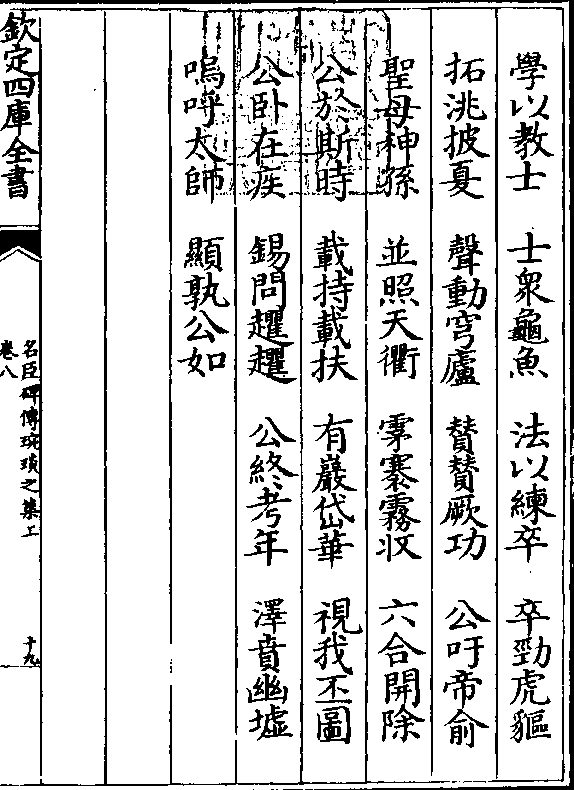 學以教士 士衆龜魚 法以練卒 卒勁虎貙
拓洮披夏 聲動穹廬 賛賛厥功 公吁帝俞
聖母神孫 並照天衢 雰褰霧收 六合開除
公於斯時 載持載扶 有巖岱華 視我丕圖
公卧在疾 錫問趯趯 公終考年 澤賁幽墟
嗚呼太師 顯孰公如
欽定四庫全書
名臣碑傳琬琰之集上
卷八
十九